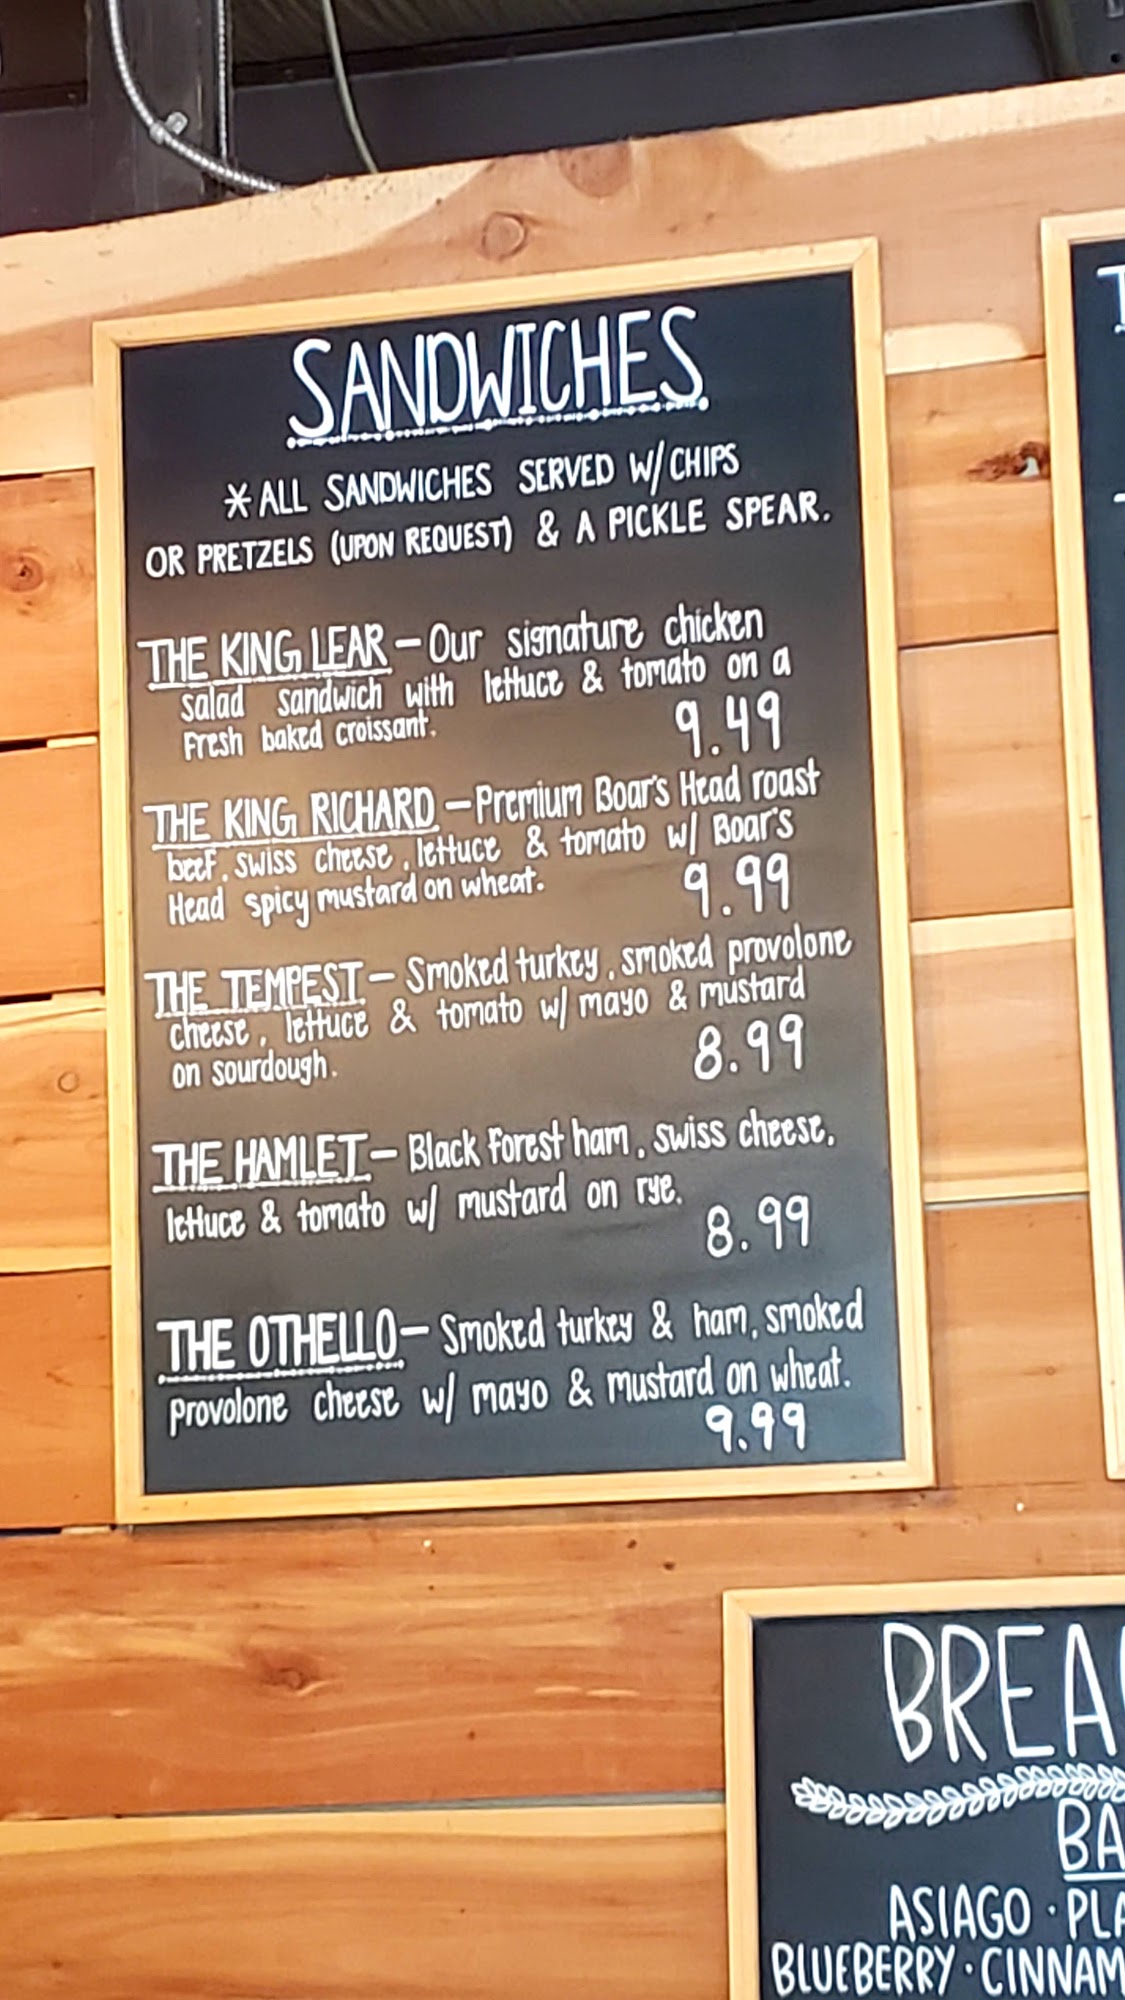 SANDWICHES
*ALL SANDWICHES SERVED W/CHIPS
OR PRETZELS (UPON REQUEST) & A PICKLE SPEAR.
THE KING LEAR - Our signature chicken
salad sandwich with lettuce & tomato on a
Fresh baked croissant.
9.49
THE KING RICHARD - Premium Boar's Head roast
beef, swiss cheese, lettuce & tomato w/ Boar's
Head spicy mustard on wheat.
9.99
THE TEMPEST - Smoked turkey, smoked provolone
cheese, lettuce & tomato w/ mayo & mustard
on sourdough.
8.99
THE HAMLET - Black Forest ham, swiss cheese,
lettuce & tomato w/ mustard on rye.
8.99
THE OTHELLO - Smoked turkey & ham, smoked
provolone cheese w/ mayo & mustard on wheat.
9.99
BREA
BA
ASIAGO · PLA
BLUEBERRY · CINNAM